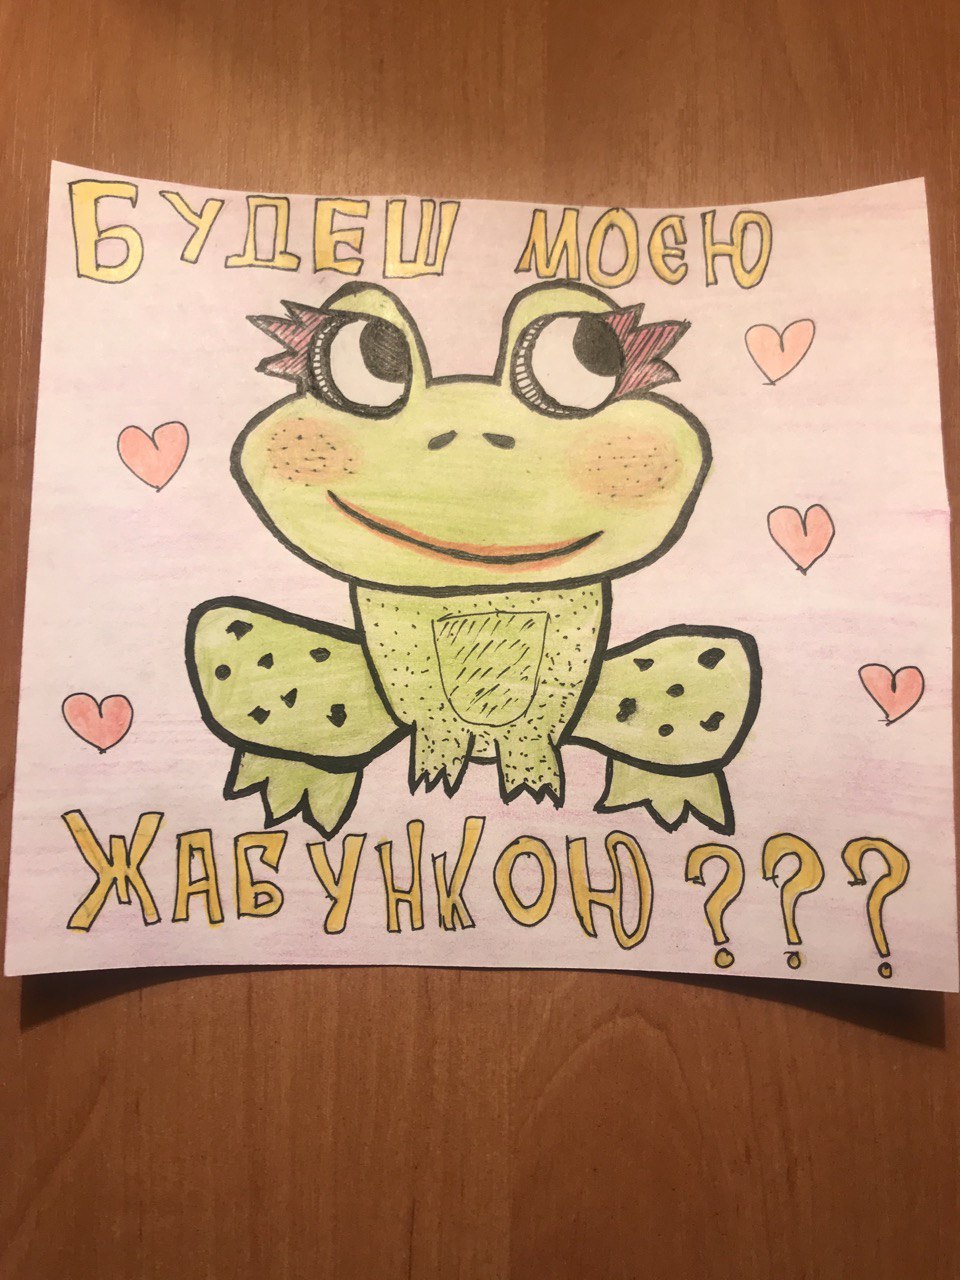 БУДЕШ МОЄЮ
ЖАБУНКОЮ???